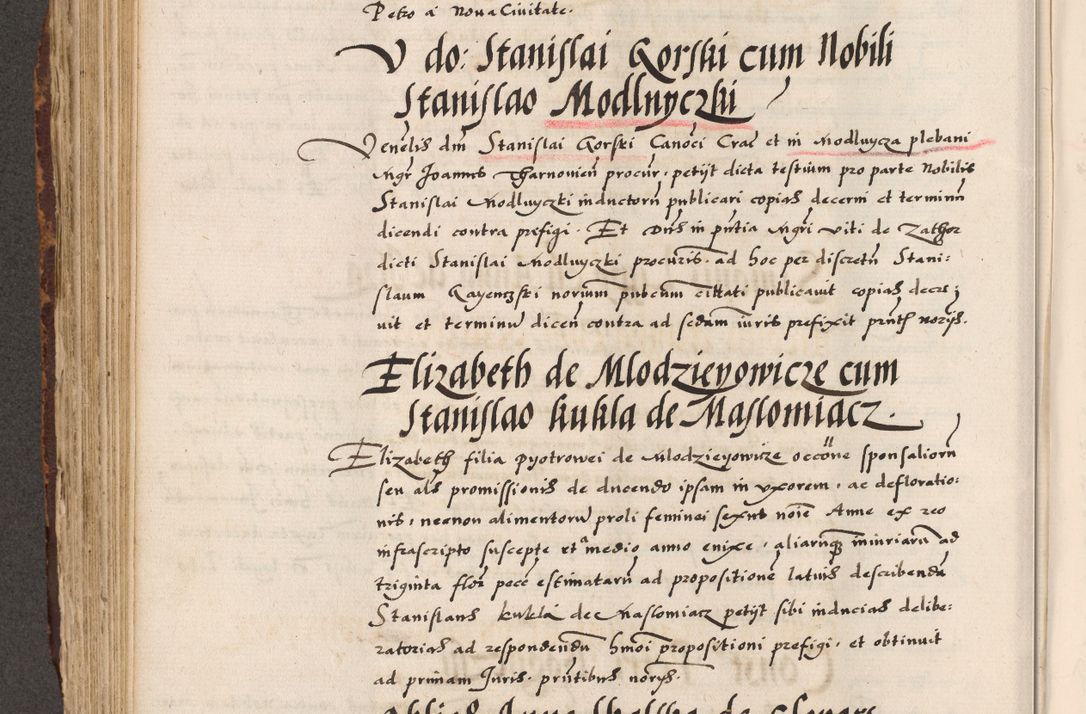 Petro a Nova Civitate.
V do: Stanislai Gorski cum Nobili
Stanislao Modlnyczki
Venelis dni Stanislai Gorski Canoci Crac et in Modlnycza plebani
Mgr Joannes Tharnovien procur. petijt dicta testium pro parte Nobilis
Stanislai Modlnyczki inductorū publicari copias decerni et terminū
dicendi contra prefigi. Et Dns in pntia Mgri Viti de Zathor
dicti Stanislai Modlnyczki procuris. ad hoc per discretū Stani-
slaum Gayenczki noriūm pubcum cittati publicavit copias decre-
vit et terminū dicen contra ad secdam iuris prefixit pntb norijs.
Elizabeth de Mlodzieyowicze cum
Stanislao kukla de Maslomiacz.
Elizabeth filia Pyotrowei de Mlodzieyowicze occōne sponsaliorū
seu als promissionis de ducendo ipsam in vxorem, ac defloratio-
nis, necnon alimentorū proli feminei sexus noie Anne ex reo
infrascripto suscepte et medio anno enixe, aliarumqz iniuriarū ad
triginta flor pecc estimatarū ad propositionē latius describendā
Stanislaus kukla de Maslomiacz petijt sibi inducias delibe-
ratorias ad respondendū hmoi propositioni prefigi, et obtinuit
ad primam Juris. pntibus norijs.